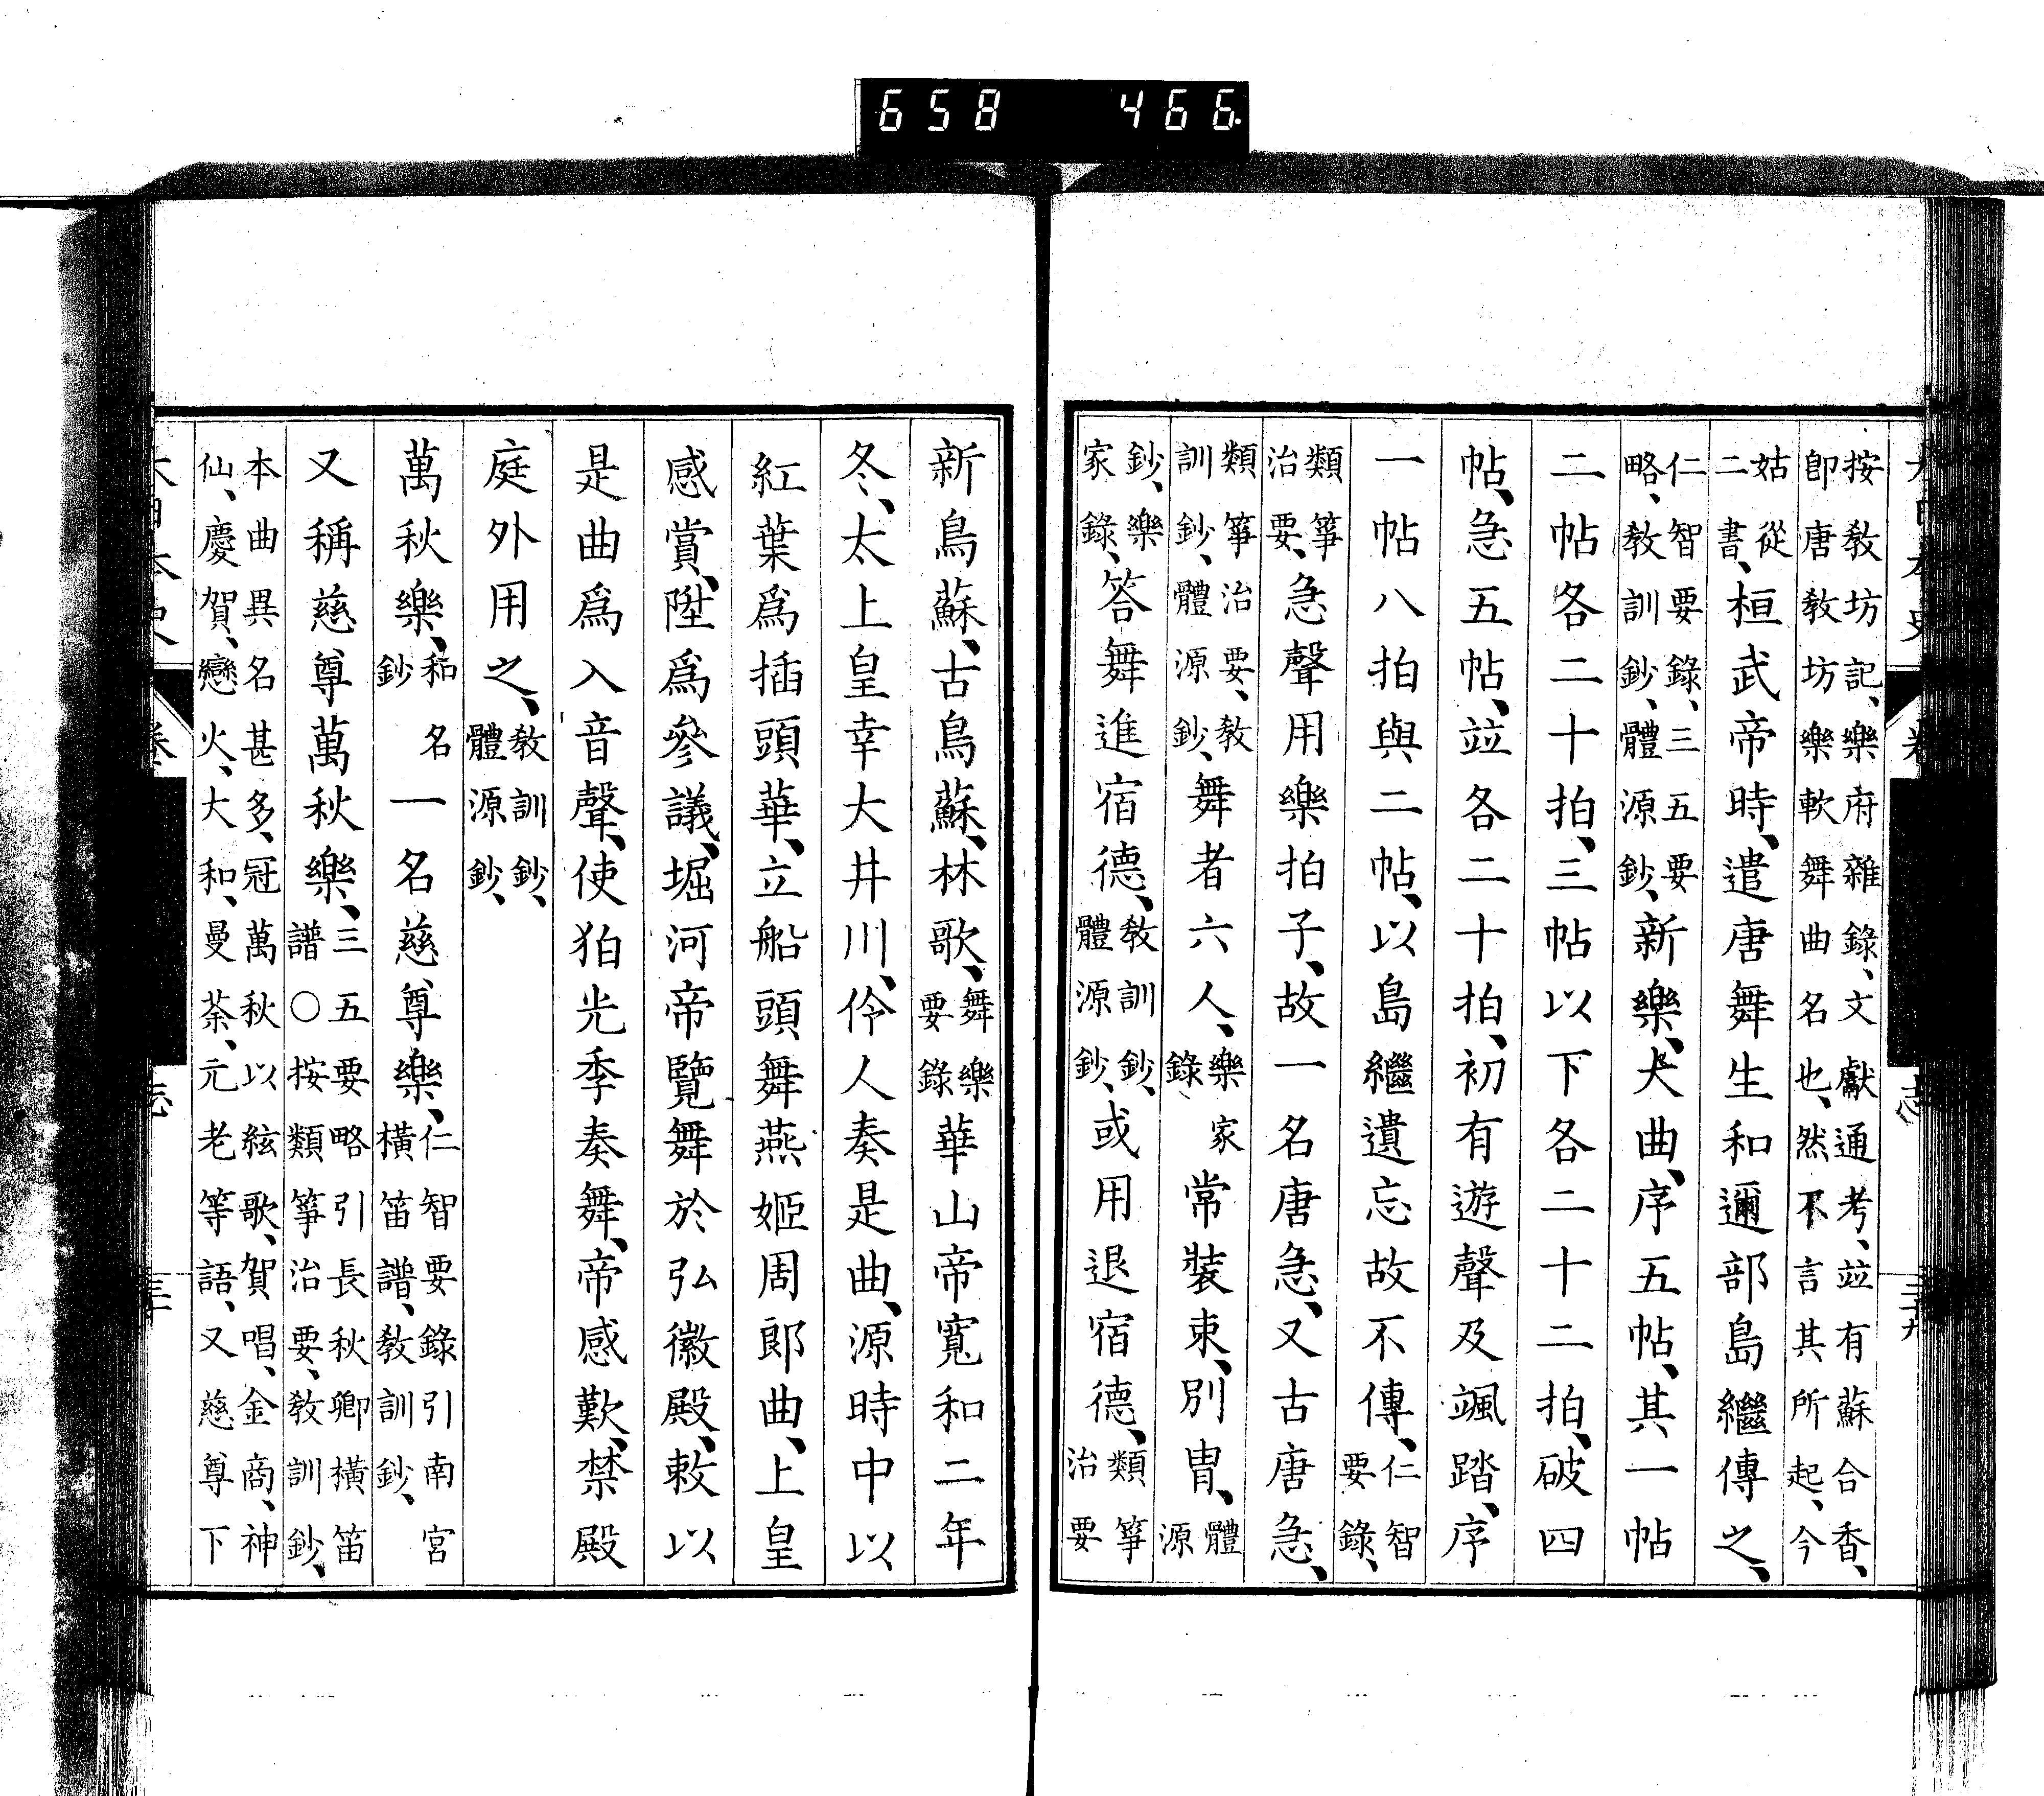 按敎坊記、樂府雜錄、文獻通考、竝有蘇合香、
卽唐敎坊樂軟舞曲名也、然不言其所起、今
姑從二書、桓武帝時、遣唐舞生和邇部島繼傳之、
仁智要錄、三五要略、敎訓鈔、體源鈔、新樂、大曲、序五帖、其一帖
二帖各二十拍、三帖以下各二十二拍、破四
帖、急五帖、竝各二十拍、初有遊聲及颯踏、序
一帖八拍與二帖、以島繼遺忘故不傳、仁智要錄、
類箏治要、急聲用樂拍子、故一名唐急、又古唐急、
類箏治要、敎訓鈔、體源鈔、舞者六人、樂家錄常裝束、別冑、體源
鈔、樂家錄、答舞進宿德、敎訓鈔、體源鈔、或用退宿德、類箏治要
新鳥蘇、古鳥蘇、林歌、舞樂要錄華山帝寬和二年
冬、太上皇幸大井川、伶人奏是曲、源時中以
紅葉爲插頭華、立船頭舞燕姬周郎曲、上皇
感賞、陞爲參議、堀河帝覽舞於弘徽殿、敕以
是曲爲入音聲、使狛光季奏舞、帝感歎、禁殿
庭外用之、敎訓鈔、體源鈔、
萬秋樂、和名鈔一名慈尊樂、仁智要錄引南宮橫笛譜、敎訓鈔、
又稱慈尊萬秋樂、三五要略引長秋卿橫笛譜○按類箏治要、敎訓鈔、
本曲異名甚多、冠萬秋以絃歌、賀唱、金商、神
仙、慶賀、戀火、大和、曼荼、元老等語、又慈尊下